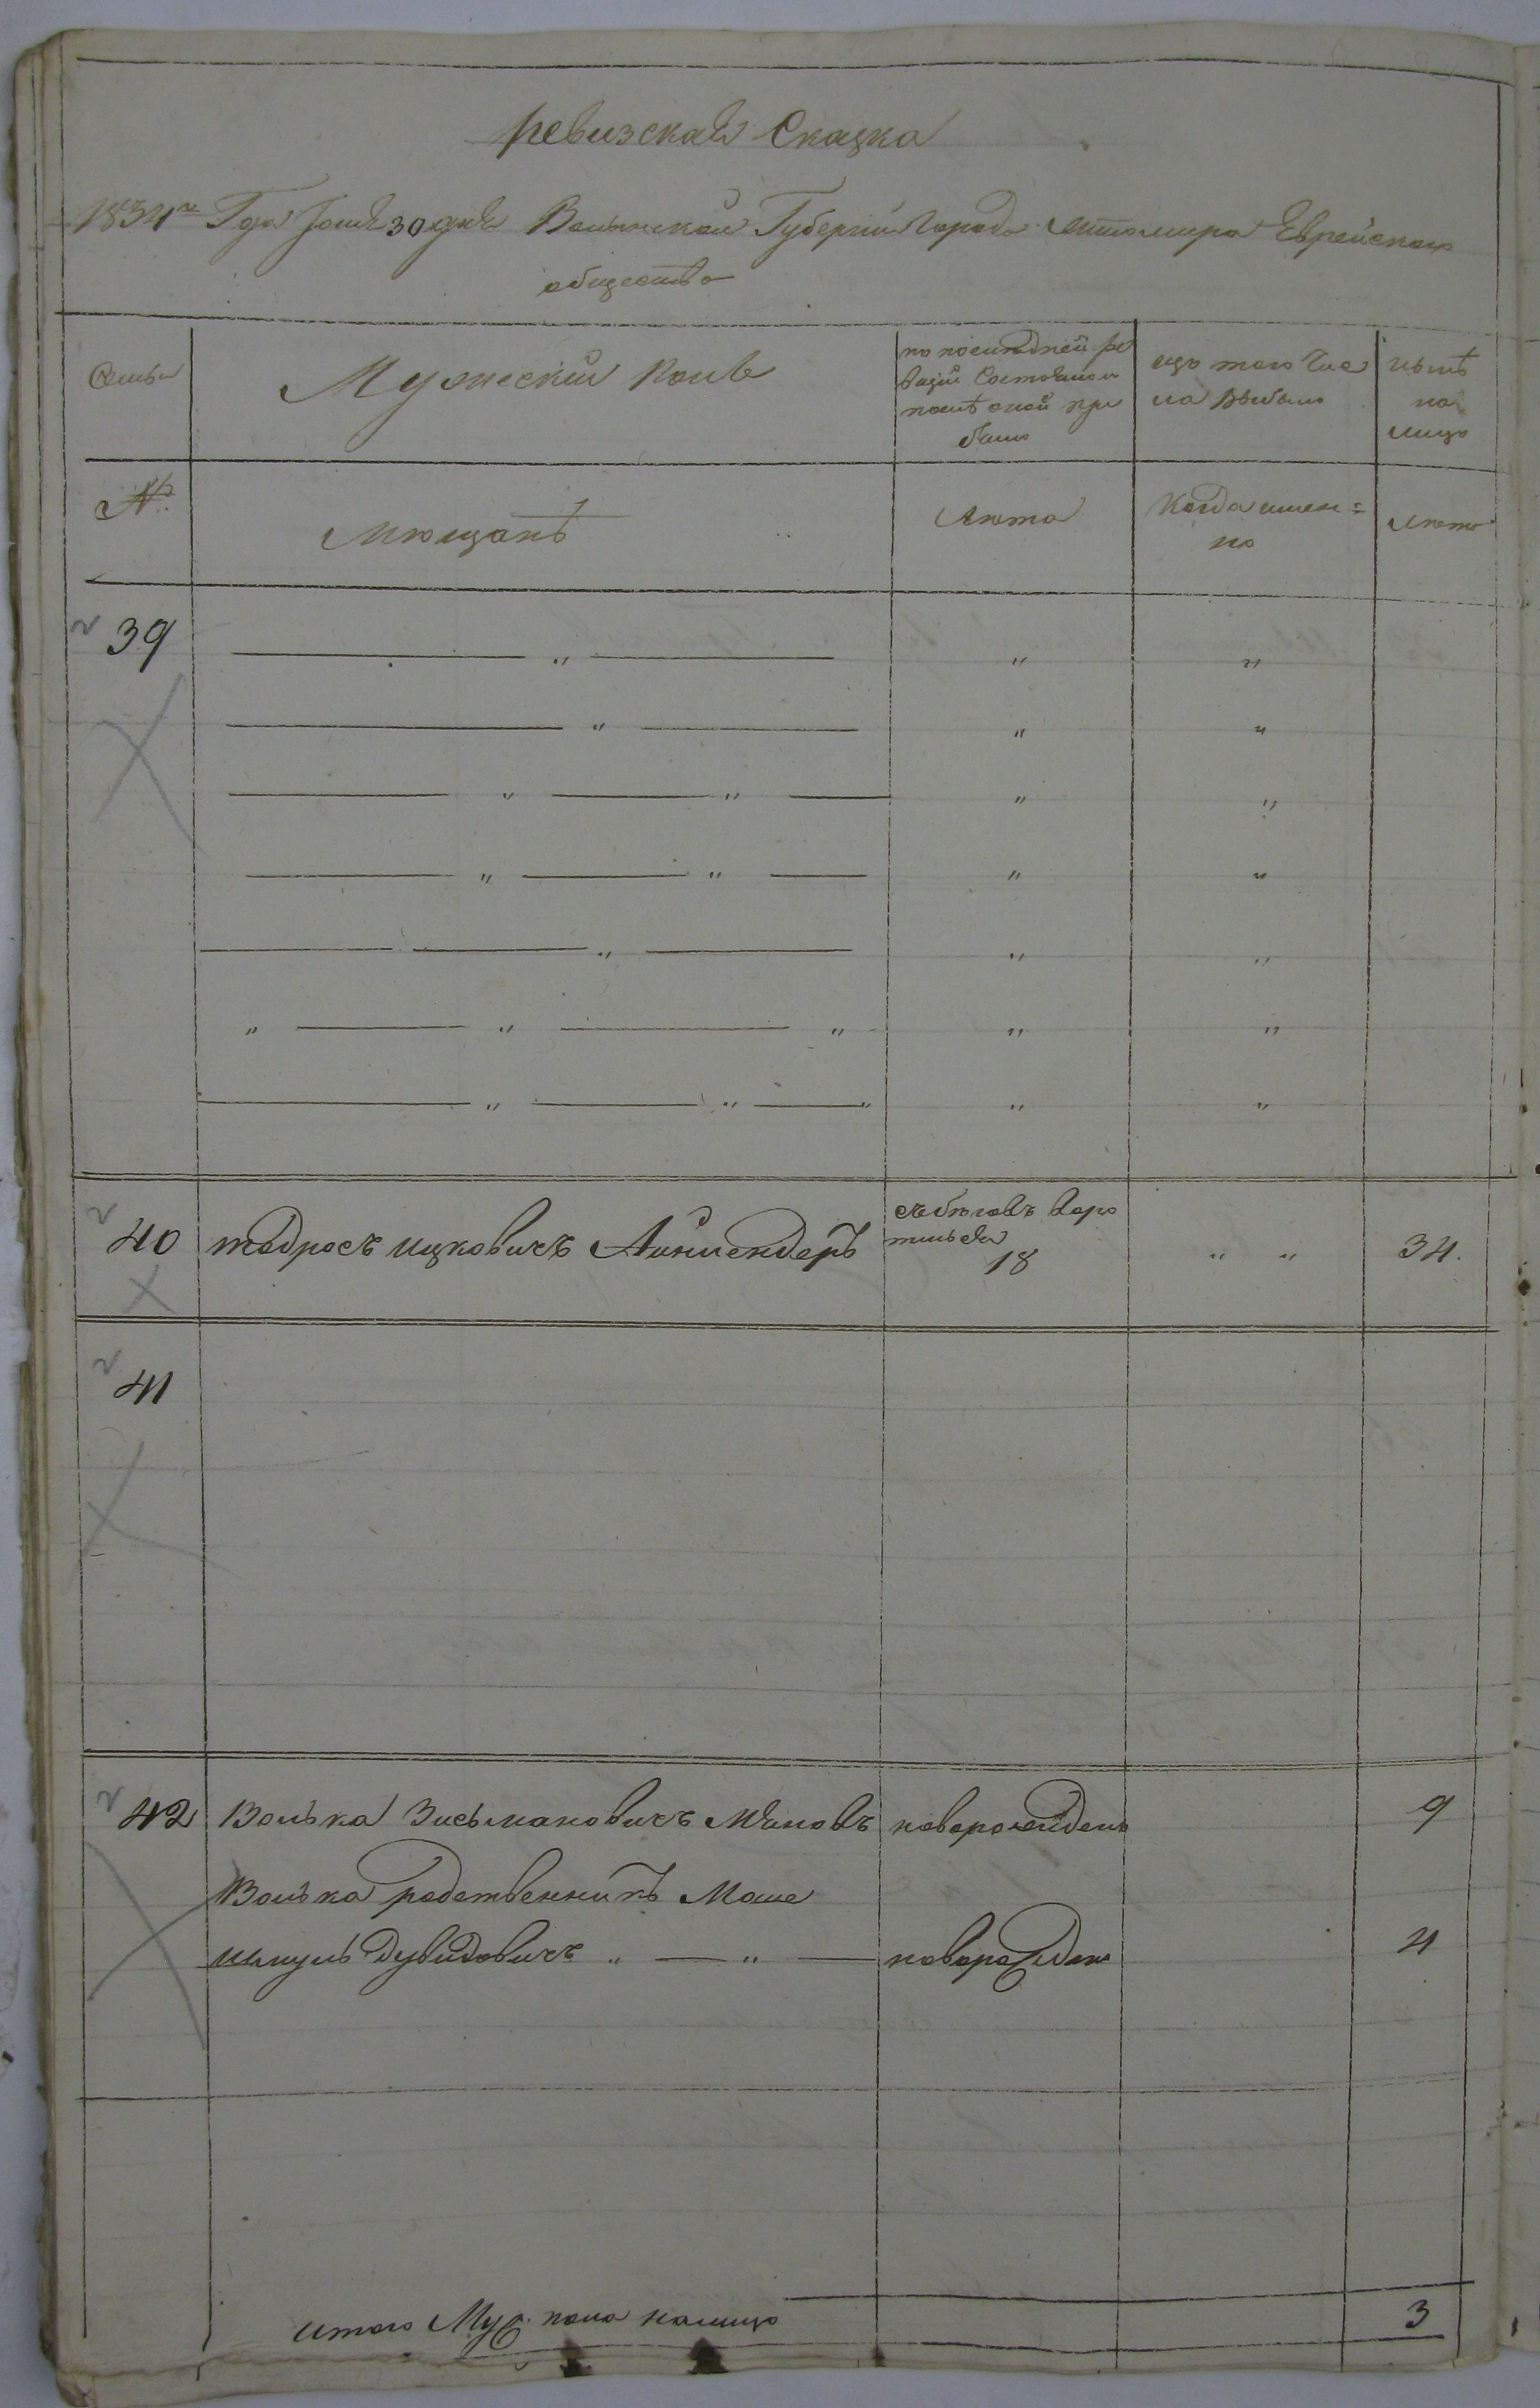 ревизская Сказка
1834го Года Iюня 30 дня Волынской Губернии Города Житомира Еврейского
общества
Семьи
Мужеский Полъ
по последней ре
визіи состояло и
после оной при
было
изъ того чис
ла выбыло
ныне
на
лицо
№
Мещане
Лета
Когда имен=
но
Лета
39
40 тодросъ ицковичъ Линшендеръ
изъ беговъ воро
тился
18
" "
34.
41
42 Волька Зисьмановичъ новорожденъ 9
Волька родственникъ Моше
шмуль Дувидовичъ " — " — новорожденъ 4
итого Муж. пола налицо 3